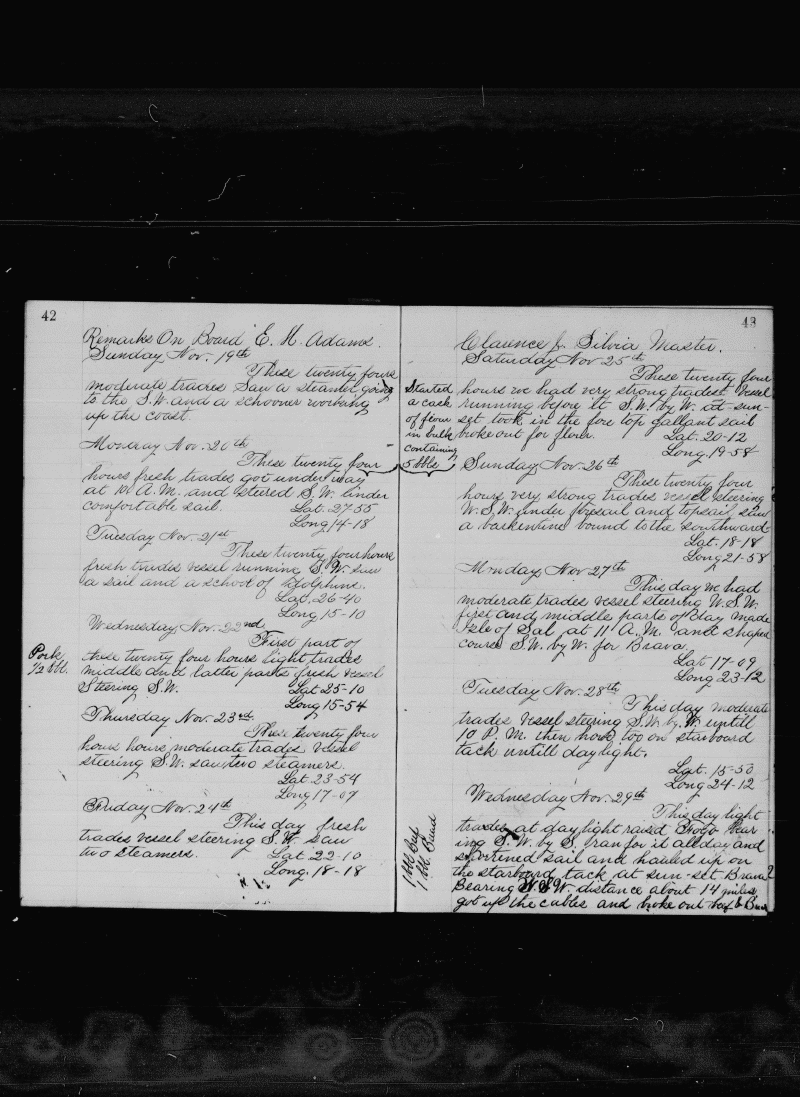 42
Remarks On Board E. H. Adams.
Sunday Nov. 19th
These twenty fours
moderate trades Saw a steamer going
to the S.W. and a schooner working
up the coast.
Monday Nov. 20th
These twenty four
hours fresh trades got under way
at 10 A.M. and steered S.W. under
comfortable sail. Lat. 27-55
Long 14-18
Tuesday Nov. 21st
These twenty four hours
fresh trades vessel running S.W. saw
a sail and a school of Dolphins.
Lat. 26-40
Long 15-10
Wednesday Nov. 22nd
First part of
Pork
1/2 bbl.
these twenty four hours light trades
middle and latter parts fresh vessel
Steering S.W. Lat 25-10
Long 15-54
Thursday Nov. 23rd
These twenty four
hours hours moderate trades vessel
steering S.W. saw two steamers.
Lat. 23-54
Long 17-07
Friday Nov. 24th
This day fresh
trades vessel steering S.W. saw
two steamers. Lat 22-10
Long. 18-18
43
Clarence J. Silvia Master.
Saturday Nov 25th
These twenty four
hours we had very strong trades vessel
running before it S.W. by W. at sun-
set took in the fore top gallant sail
broke out for flour. Lat. 20-12
Long. 19-58
Started
a cask
of flour
in bulk
containing
5 bbls
Sunday Nov. 26th
These twenty four
hours very strong trades vessel steering
W.S.W. under foresail and topsail saw
a barkentine bound to the southward
Lat. 18-18
Long 21-58
Monday, Nov 27th
This day we had
moderate trades vessel steering W.S.W.
first and middle parts of day made
Isle of Sal at 11 A.M. and shaped
course S.W. by W. for Brava
Lat 17-09
Long 23-12
Tuesday Nov. 28th
This day moderate
trades vessel steering S.W. by W. untill
10 P.M. then hove too on starboard
tack untill daylight.
Lat. 15-50
Long 24-12
Wednesday Nov. 29th
This day light
trades at day light raisd Fogo bear
ing S.W. by S. ran for it all day and
shortined sail and hauled up on
the starboard tack at sun-set Brava
Bearing W.S.W. distance about 14 miles
got up the cables and broke out beef &
1 bbl Beef
1 bbl. Bread